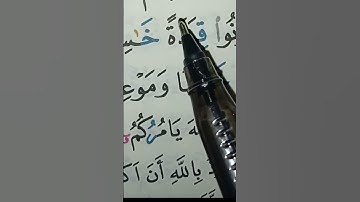 نُوا قِرَدَةً خَٰسِ
ا وَمَوْعِ
هَ يَامُرُكُمُ
بِاللَّهِ أَنَ اَك